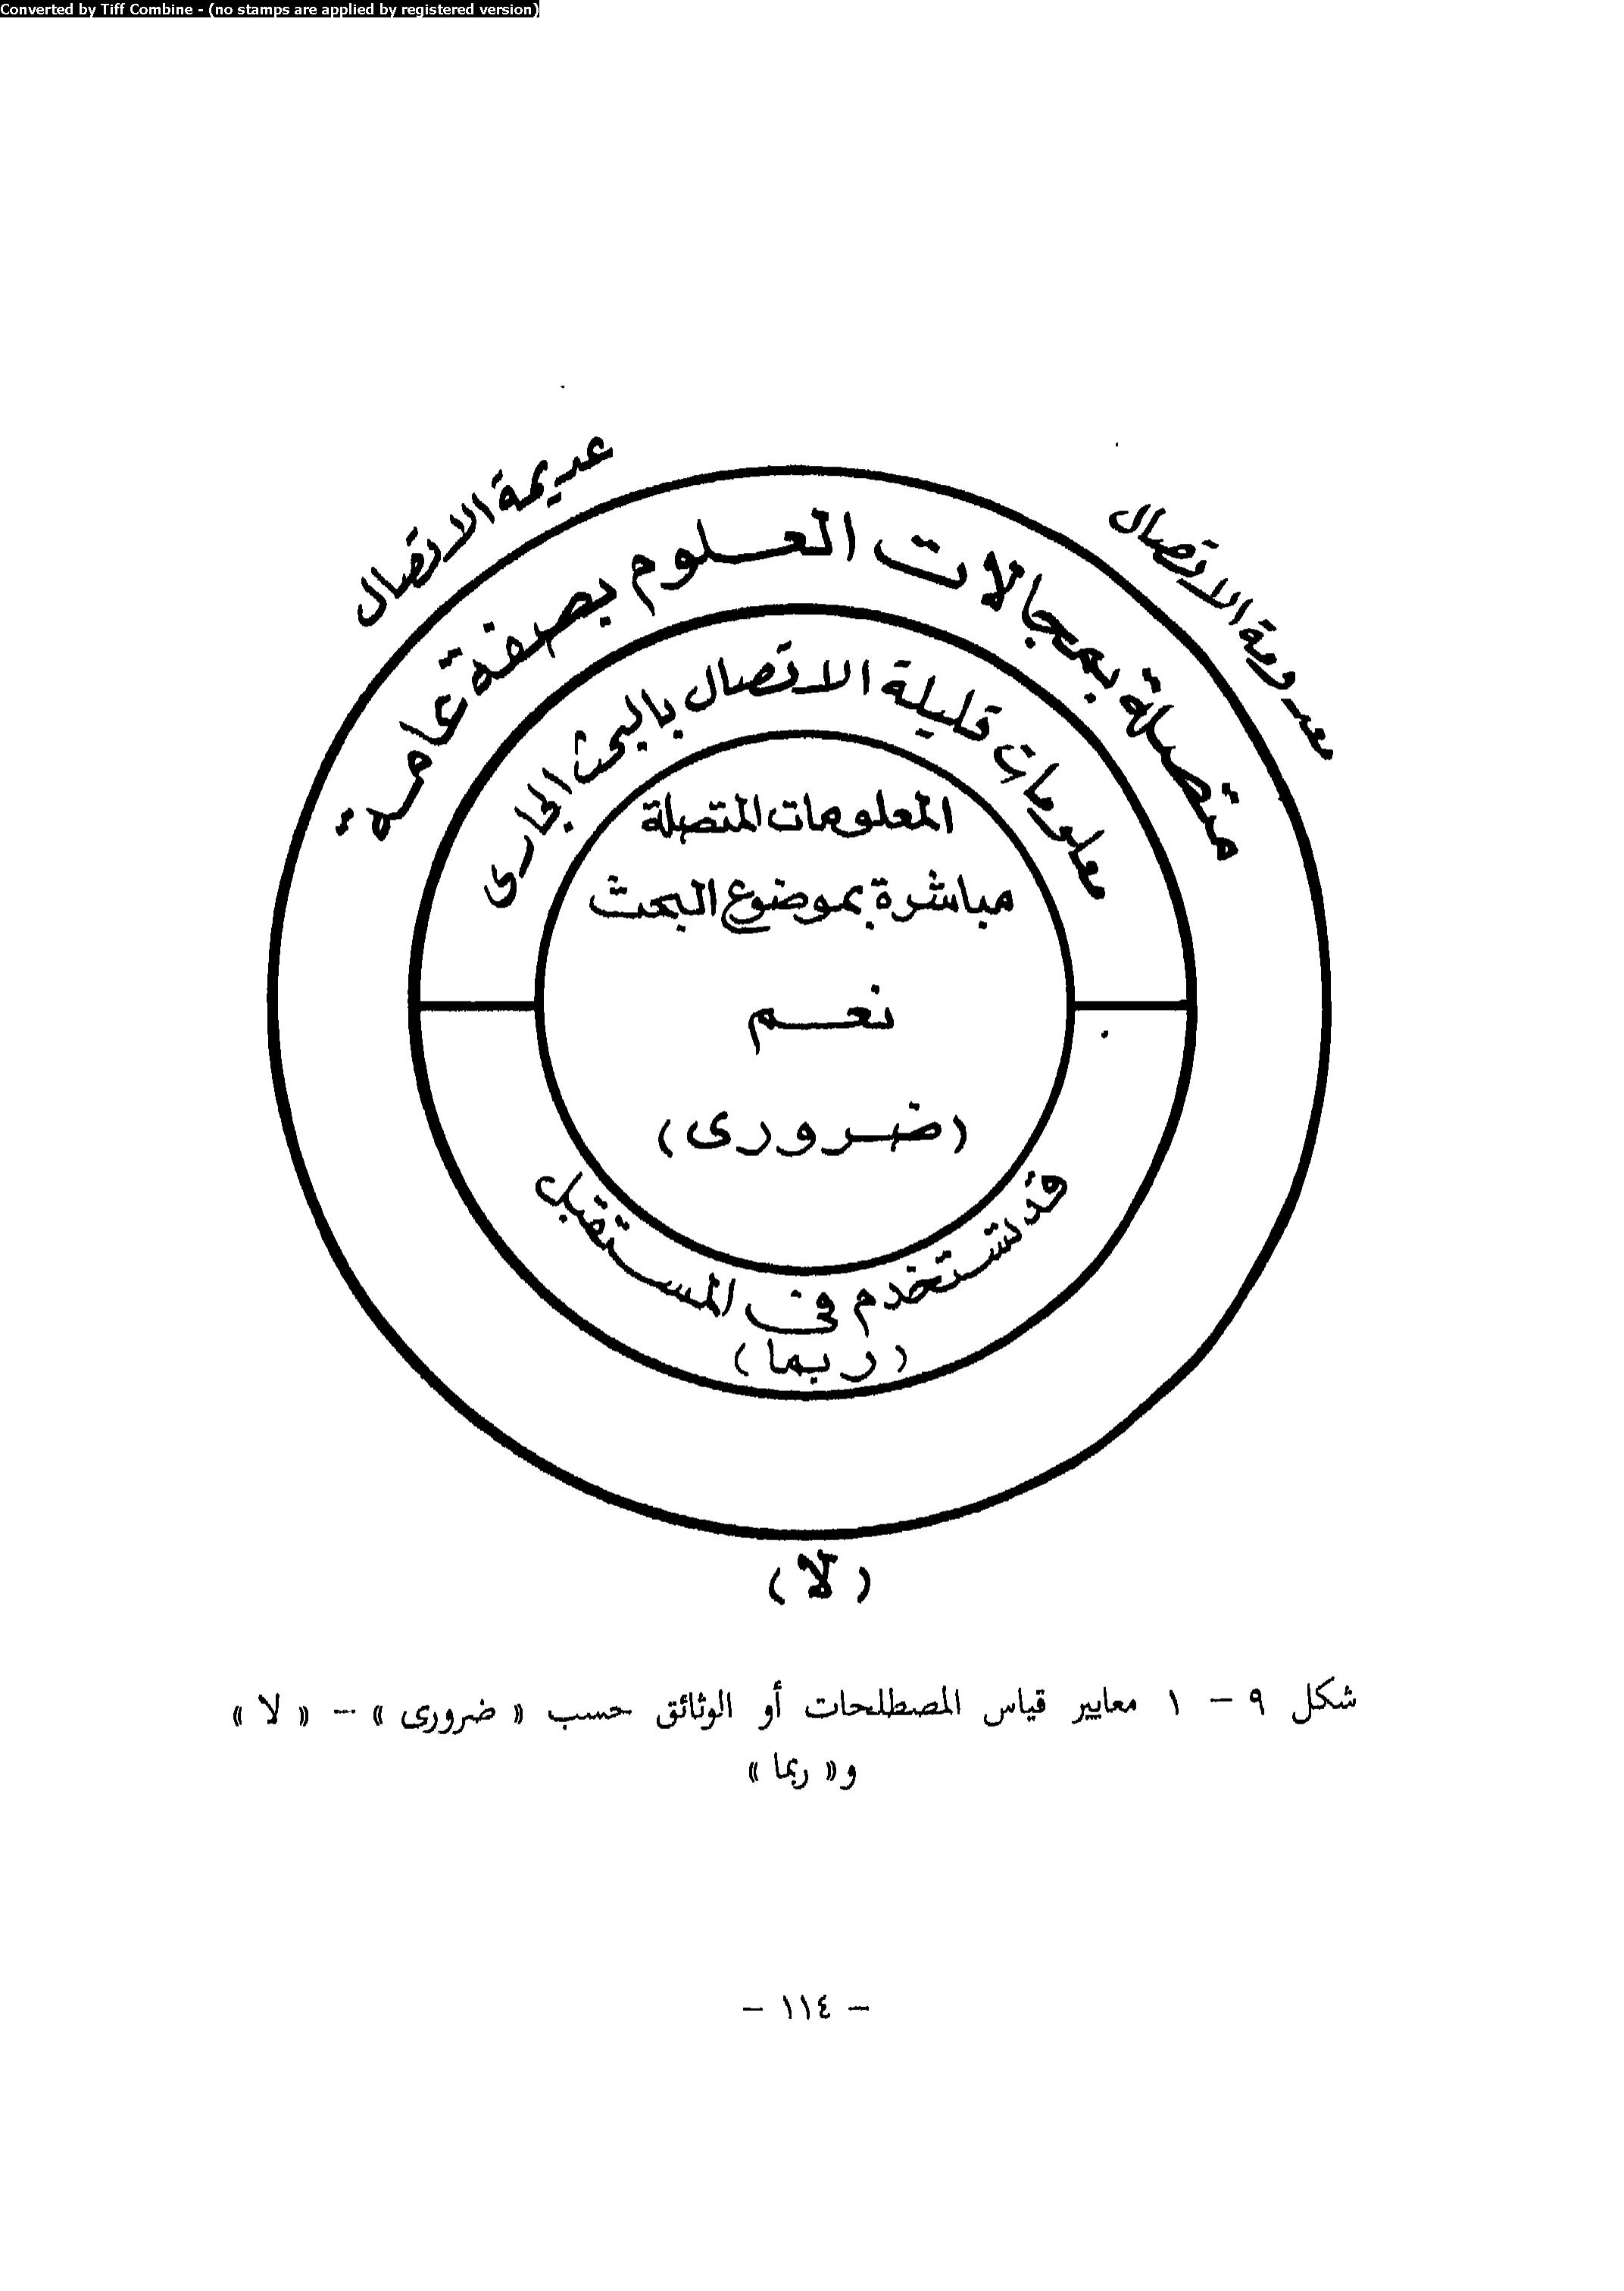 Converted by Tiff Combine - (no stamps are applied by registered version)
عديمة الاتصال
معدومة الاتصال
متصلة بمجالات العلوم بصفة عامة
معلومات قليلة الاتصال بالبحث الجارى
المعلومات المتصلة
مباشرة بموضوع البحث
نعم
(ضرورى)
قد تستخدم فى المستقبل
(ربما)
(لا)
شكل ٩ - ١ معايير قياس المصطلحات أو الوثائق حسب « ضرورى » - « لا »
و« ربما »
- ١١٤ -